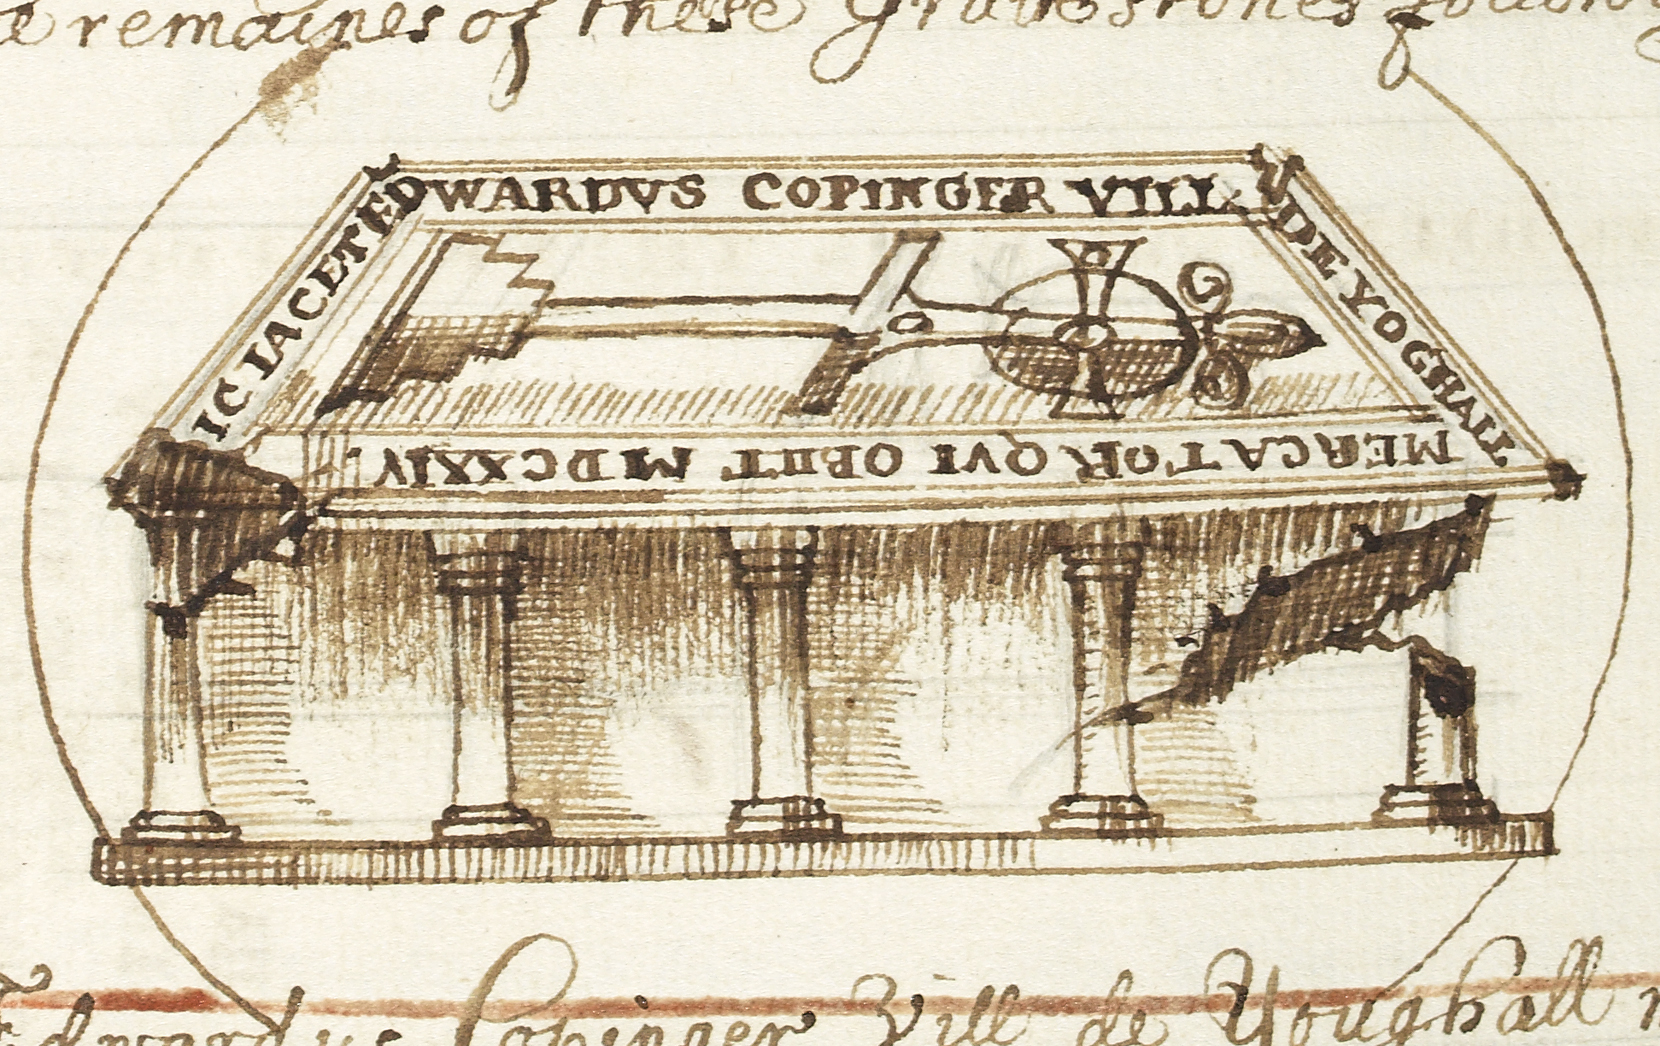 remaines of these Grave stones
IC IACET EDWARDVS COPINGER VILL
DE YOGHALL
MERCATOR QVI OBIIT MDCXXIV
Edwardus Copinger Vill de Youghall